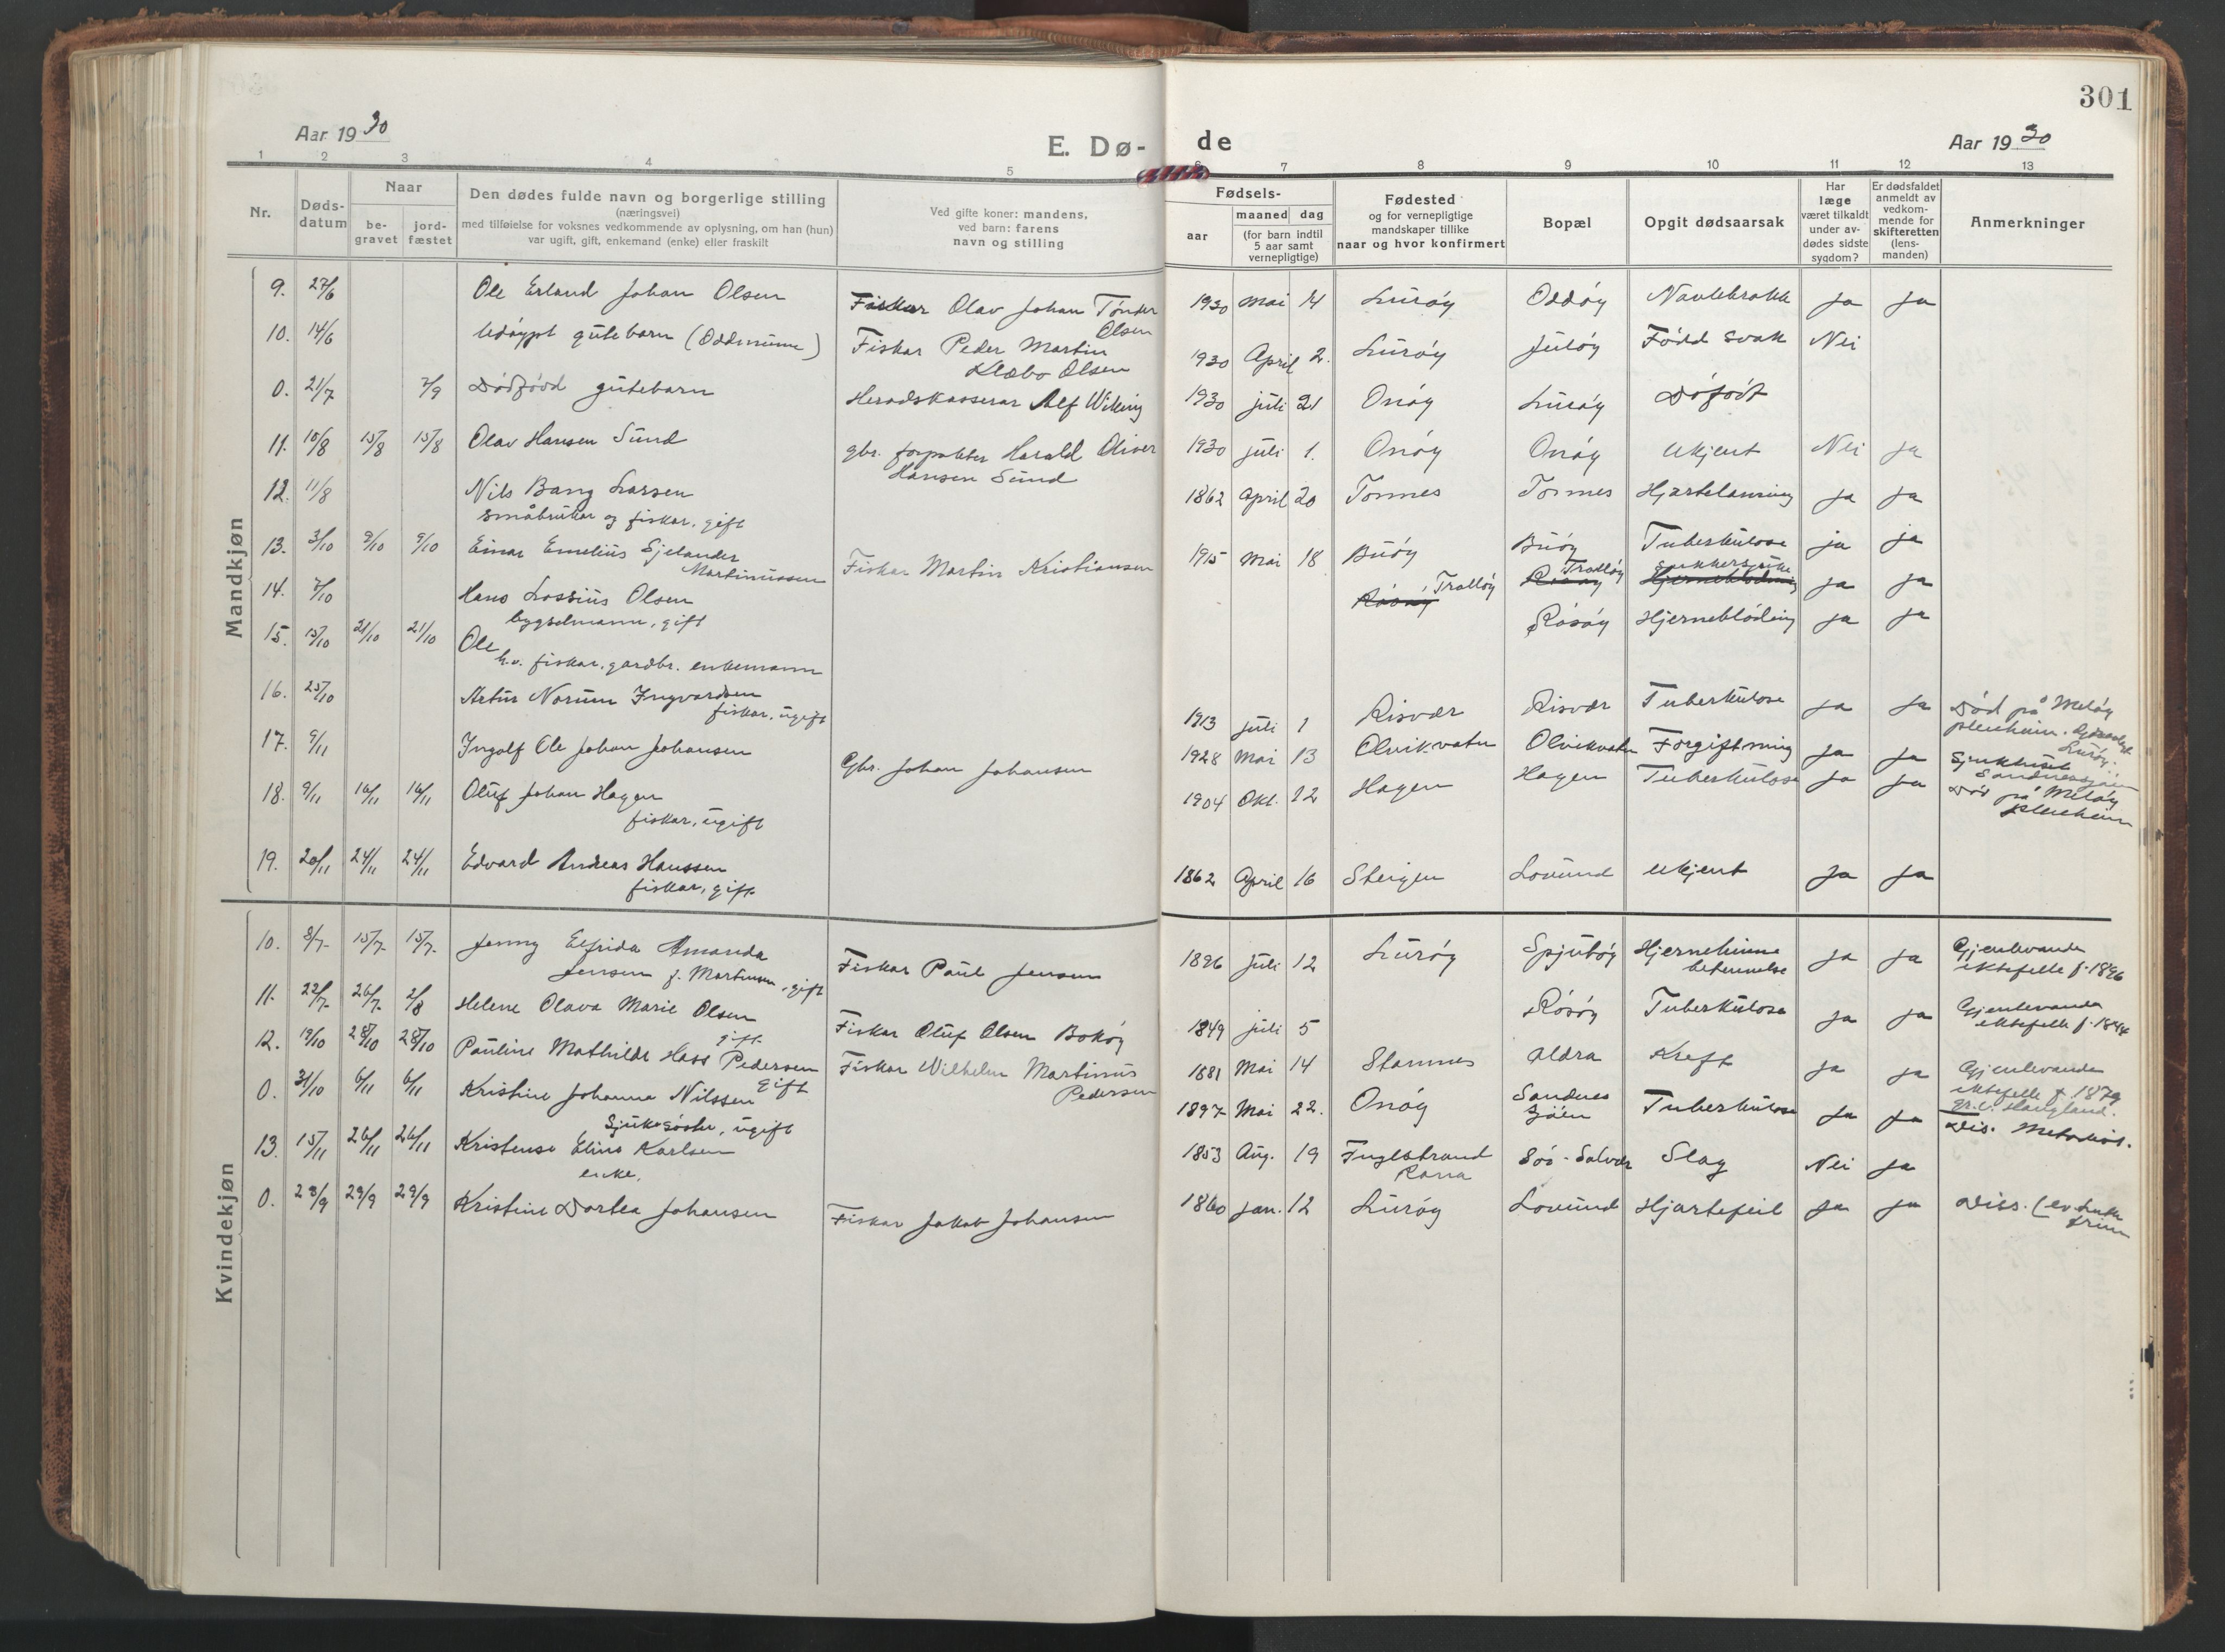 301
Aar 1930
E. Dø-
de
Aar 1930
1 2 3 4 5 6 7 8 9 10 11 12 13
Nr.
Døds-
datum
Naar
be-
gravet
jord-
fæstet
Den dødes fulde navn og borgerlige stilling
(næringsvei)
med tilføielse for voksnes vedkommende av oplysning, om han (hun)
var ugift, gift, enkemand (enke) eller fraskilt
Ved gifte koner: mandens,
ved barn: farens
navn og stilling
Fødsels-
aar
maaned dag
(for barn indtil
5 aar samt
vernepligtige)
Fødested
og for vernepligtige
mandskaper tillike
naar og hvor konfirmert
Bopæl
Opgit dødsaarsak
Har
læge
været tilkaldt
under av-
dødes sidste
sygdom?
Er dødsfaldet
anmeldt av
vedkom-
mende for
skifteretten
(lens-
manden)
Anmerkninger
Mandkjøn
9. 27/6 Ole Erland Johan Olsen Fiskar Olav Johan Tønder 1930 mai 14 Lurøy Oddøy Navlebrokk ja ja
Olsen
10. 14/6 Udøypt gutebarn (Oddmunn) Fiskar Peder Martin 1930 April 2. Lurøy Juløy Fødd svak Nei
Klæbo Olsen
0. 21/7 7/9 Dødfødd gutebarn Heradskasserar Alf Wiking 1930 juli 21 Onøy Lurøy Døfødt
11. 10/8 15/8 15/8 Olav Hansen Sund gbr. forpakter Harald Oliver 1930 juli 1. Onøy Onøy Ukjent Nei ja
Hansen Sund
12. 11/8 Nils Bang Larsen 1862 April 20 Tonnes Tonnes Hjartelamning ja ja
småbrukar og fiskar, gift
13. 3/10 9/10 9/10 Einar Emelius Sjelander Fiskar Martin Kristiansen 1915 Mai 18 Buøy Buøy Tuberkulose ja ja
Martinussen
14. 7/10 Hans Lossius Olsen Røsøy Trolløy Røsøy Trolløy Hjerneblødning sukkersjuke ja ja
bygselmann, gift
15. 15/10 21/10 21/10 Ole Røsøy Hjerneblødning ja ja
h.v. fiskar, gardbr. enkemann
16. 25/10 Artur Norum Ingvardsen 1913 juli 1 Risvær Risvær Tuberkulose ja ja Død på Meløy
fiskar, ugift pleieheim.
Lurøy.
17. 9/11 Ingolf Ole Johan Johansen Gbr. Johan Johansen 1928 Mai 13 Olvikvatn Olvikvatn Forgiftning ja ja Sjukehuset
Sandnessjøen
18. 9/11 16/11 16/11 Oluf Johan Hagen 1904 Okt. 12 Hagen Hagen Tuberkulose ja ja Død på Meløy
fiskar, ugift pleieheim
19. 20/11 24/11 24/11 Edvard Andreas Hanssen 1862 April 16 Steigen Lovund Ukjent ja ja
fiskar, gift
Kvindekjøn
10. 8/7 15/7 15/7 Jenny Elfrida Amanda Fiskar Paul Jensen 1896 juli 12 Lurøy Spjutøy Hjernehinne ja ja Gjenlevande
Jensen f. Martinsen, gift betennelse ektefelle f. 1896
11. 22/7 26/7 2/8 Helene Olava Marie Olsen Fiskar Oluf Olsen Bokøy 1849 juli 5 Røsøy Tuberkulose ja ja Gjenlevande
gift ektefelle f. 1844
12. 19/10 28/10 28/10 Pauline Mathilde Hass Pedersen Fiskar Wilhelm Martinus 1881 Mai 14 Stamnes Aldra Kreft ja ja Gjenlevande
gift Pedersen ektefelle f 1879
0. 31/10 6/11 6/11 Kristine Johanna Nilssen 1897 Mai 22. Onøy Sandnes Tuberkulose ja ja
Sjukesøster, ugift sjøen Dis. Metodist.
13. 15/11 26/11 26/11 Kristense Elius Karlsen 1853 Aug. 19 Fuglstrand Sør-Solvær Slag Nei ja
enke. Rana
0. 23/9 29/9 29/9 Kristine Dortea Johansen Fiskar Jakob Johansen 1860 jan. 12 Lurøy Lovund Hjartefeil ja ja Diss. (ev.luth
frim